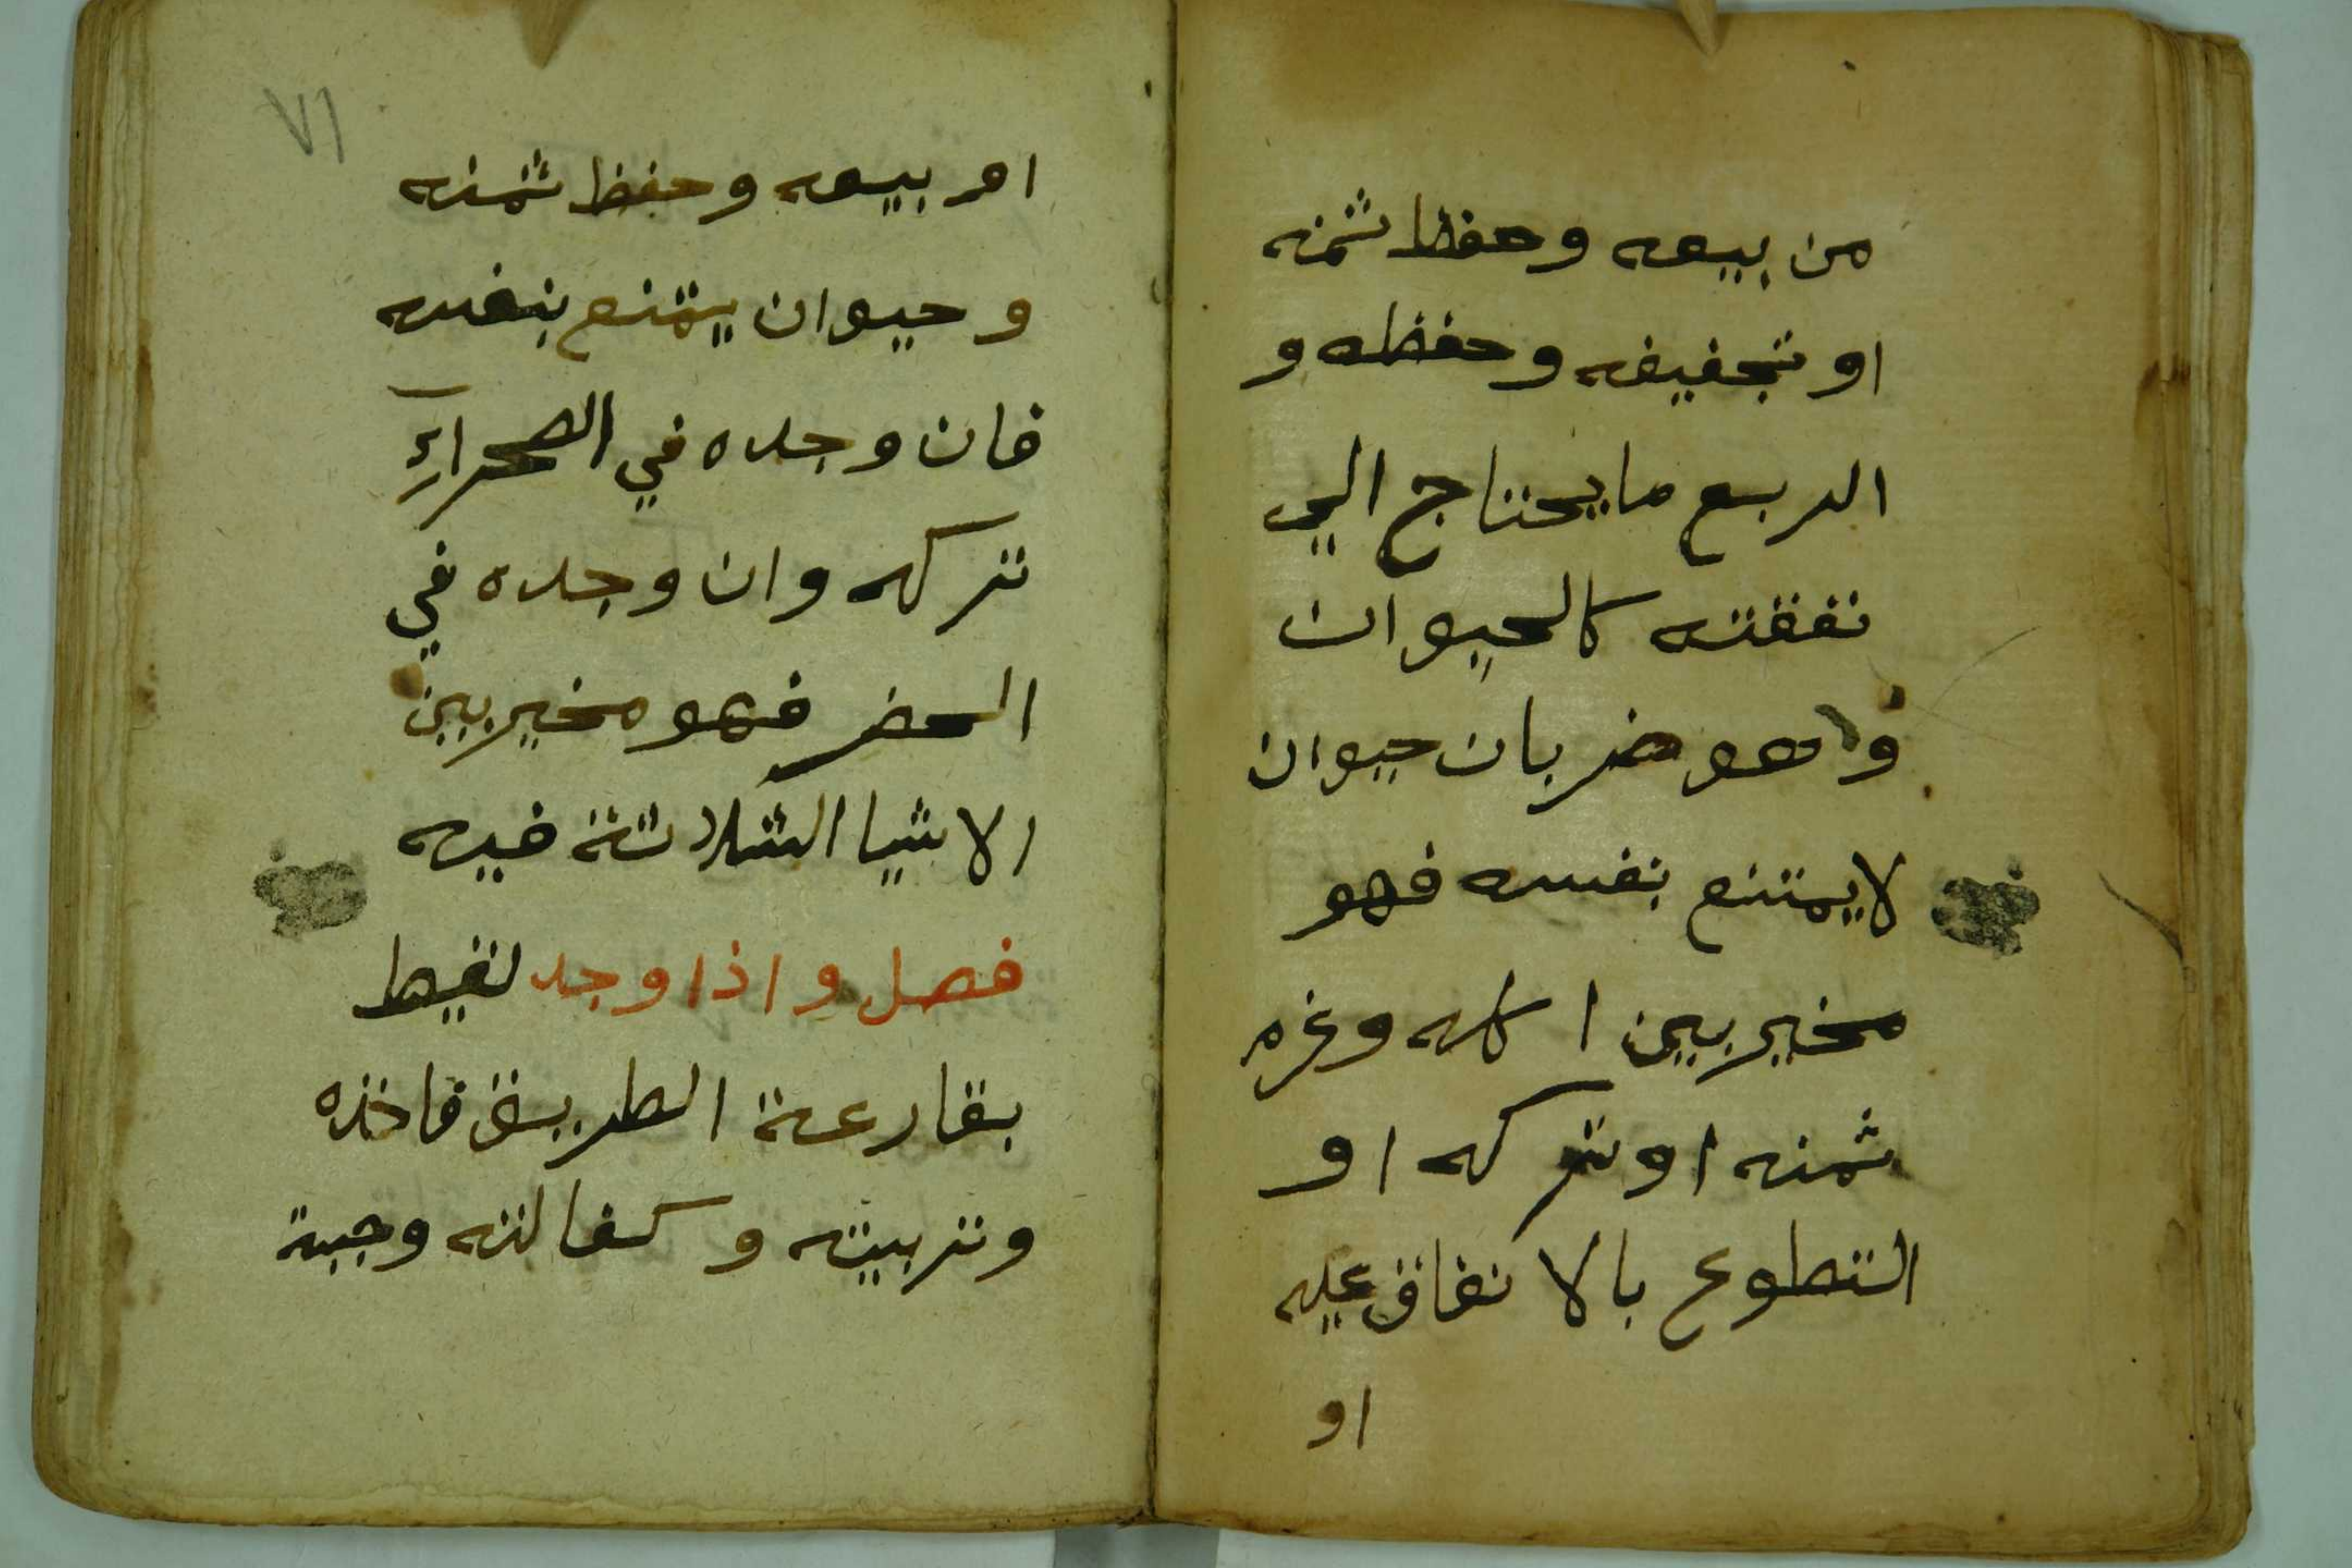 من بيعه وحفظ ثمنه
او تجفيفه وحفظه و
الربع ما يحتاج الي
نفقته كالحيوان
وهو ضربان حيوان
لا يمتنع بنفسه فهو
مخير بين اكله وغرم
ثمنه او تركه او
التطوع بالانفاق عليه
او
٧١
امر بيعه وحفظ ثمنه
وحيوان يمتنع بنفسه
فان وجده في الصحراءِ
تركه وان وجده في
الحضر فهو مخير بين
الاشيا الثلاثة فيه
فصل واذا وجد لقيط
بقارعة الطريق فاخذه
وتربيته وكفالته وجبة